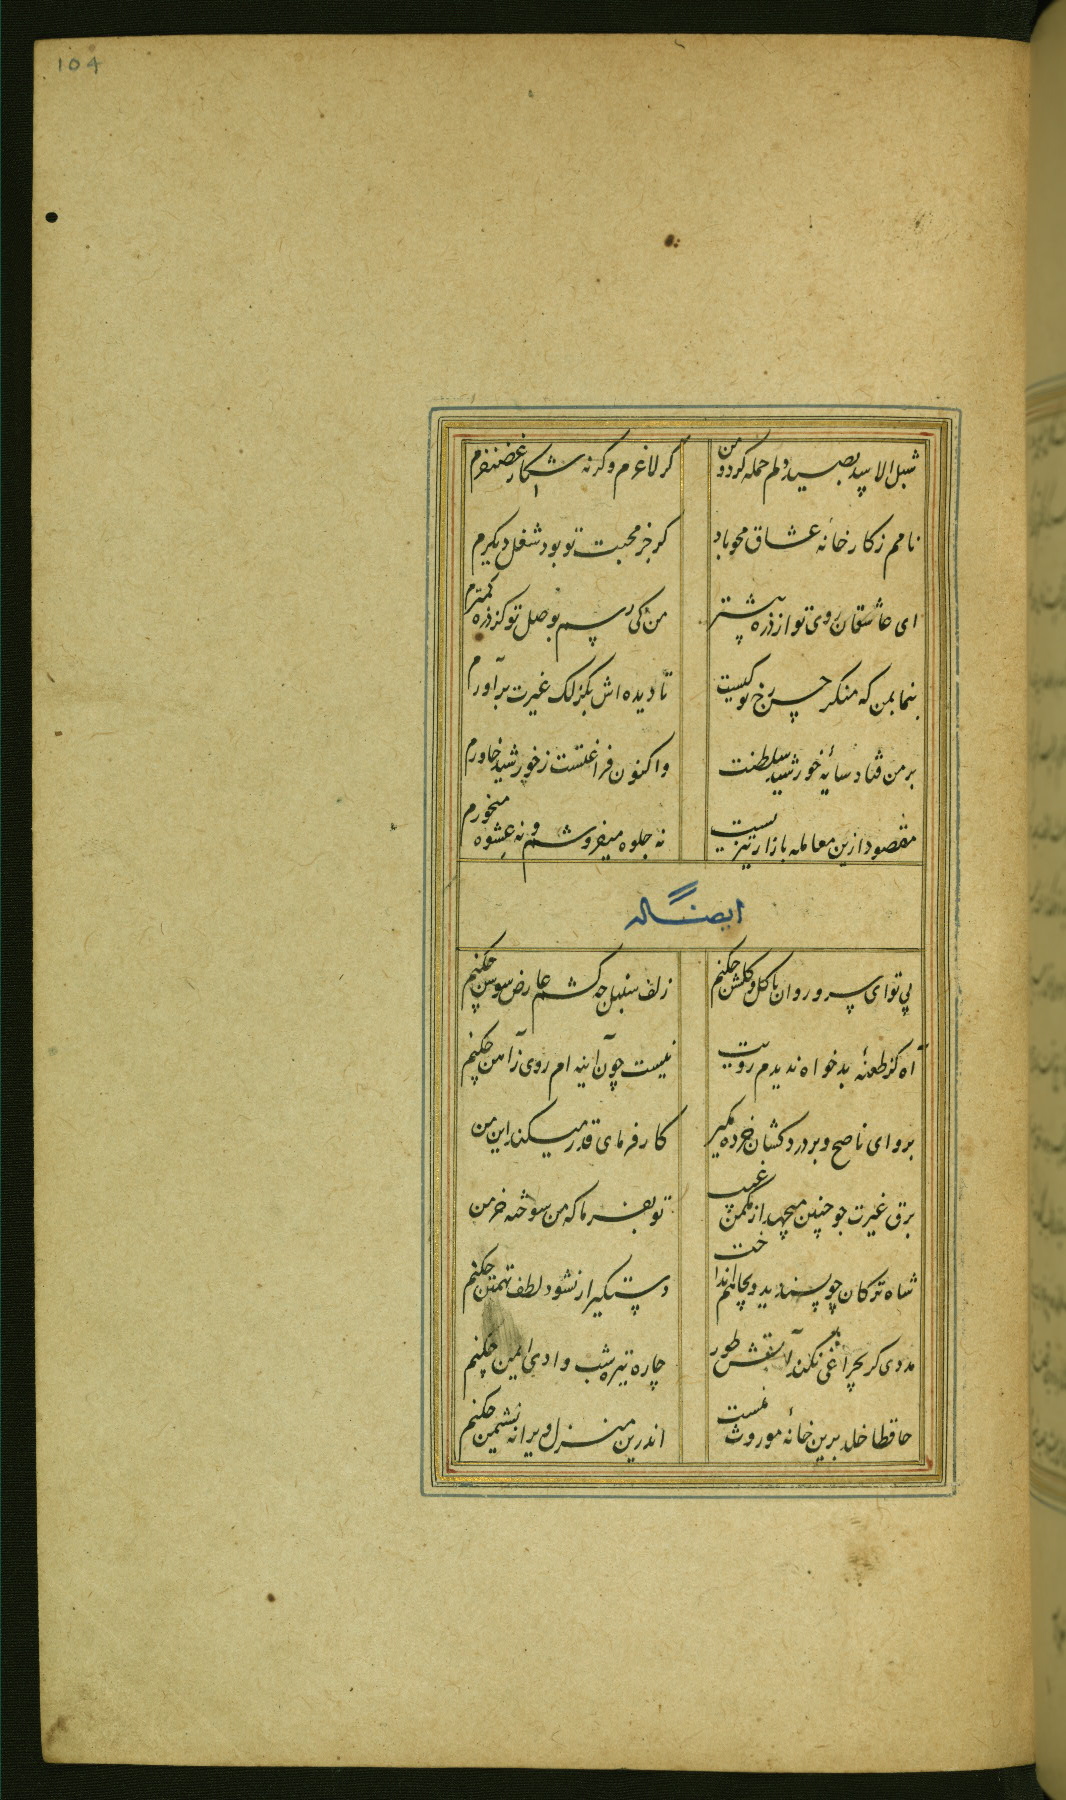 104
شبل الاسد بصید دلم حمله کرد و من
کر لاغرم وکرنه شکار غضنفرم
نامم ز کارخانه عشاق محو باد
کر جز محبت تو بود شغل دیکرم
ای عاشقان روی تو از ذره بیشتر
من کی رسم بوصل تو کز ذره کمترم
بنما بمن که منکر حسن رخ تو کیست
تا دیده اش بکزلک غیرت برآورم
بر من فتاد سایه خورشید سلطنت
واکنون فراغتست ز خورشید خاورم
مقصود ازین معامله بازار تیزیست
نه جلوه میفروشم و نه عشوه میخرم
ایضاً له
بی تو ای سرو روان با کل و کلشن چکنم
زلف سنبل چه کشم عارض سوسن چکنم
آه کز طعنه بدخواه ندیدم رویت
نیست چون آینه ام روی ز آهن چکنم
برو ای ناصح و بر دردکشان خرده مکیر
کارفرمای قدر میکند این من
برق غیرت چو چنین میجهد از مکمن غیب
تو بفرما که من سوخته خرمن
شاه ترکان چو پسندید و بچاهم انداخت
دستکیر ار نشود لطف تهمتن چکنم
مددی کر بچراغی نکند آتش طور
چاره تیره شب وادی ایمن چکنم
حافظا خلد برین خانه موروث منست
اندرین منزل ویرانه نشیمن چکنم